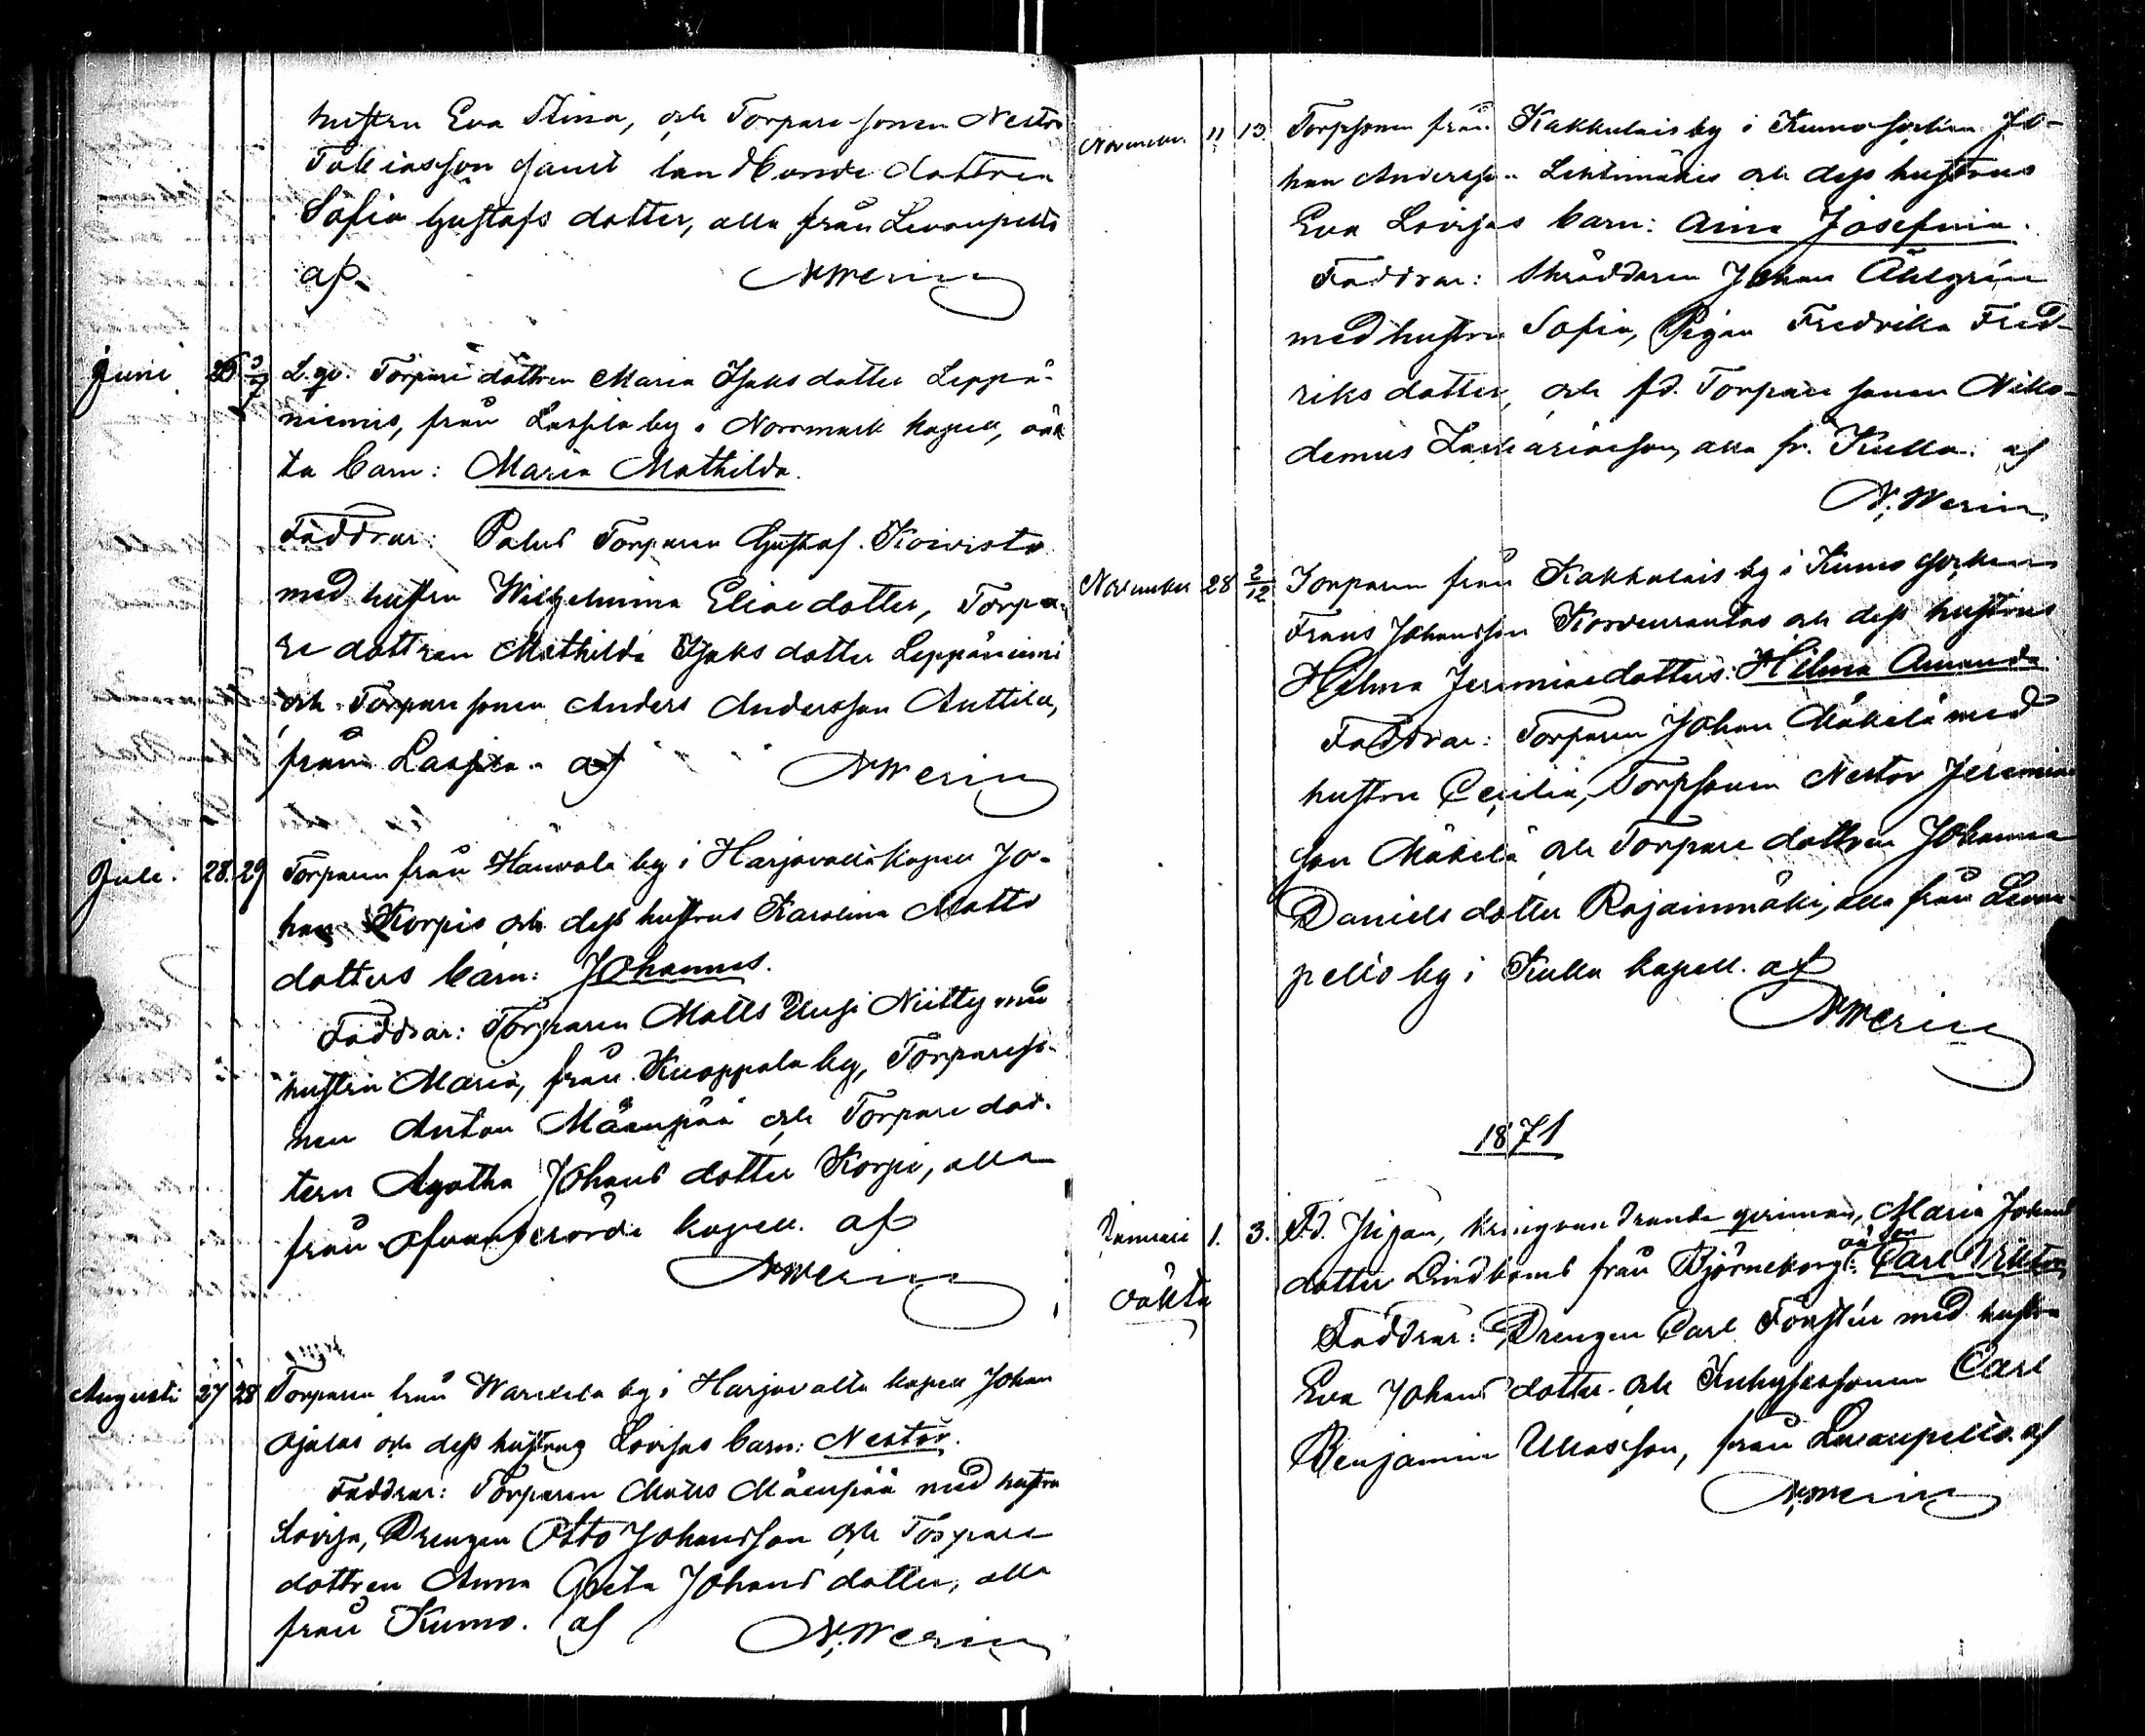 hustrun Eva Stina, och Torpare sonen Nestor
Tobiasson samt landbonde dottren
Sofia Gustafs dotter, alla från Levanpelto
af NWerin
Juni 25 3/7 L. gv. Torpare dottren Maria Isaks dotter Leppä-
niemis, från Lassila by i Norrmark kapell, oäk
ta barn: Maria Mathilda.
Faddrar: Torparen Gustaf Koivisto
med hustru Wilhelmina Eliae dotter, Torpa-
re dottren Mathilda Isaks dotter Leppäniemi
och Torpare sonen Anders Andersson Anttila,
från Lassila. af NWerin
Juli. 28. 29 Torparen från Hauvola by i Harjavalta kapell Jo-
han Korpis och dess hustrus Karolina Matts
dotters barn: Johannes.
Faddrar: Torparen Matts Uusi Niitty med
hustru Maria, från Knoppala by, Torpareso-
nen Anton Mäenpää och Torpare dot-
tern Agatha Johans dotter Korpi, alla
från kapell. af
NWerin
Augusti 27 28 Torparen från by i Harjavalta kapell Johan
Ojalas och dess hustrus Lovisas barn: Nestor.
Faddrar: Torparen Matts Mäenpää med hustru
Lovisa, Drengen Otto Johansson och Torpare
dottren Anna Greta Johans dotter, alla
från Kumo. af N. Werin
November 11 13. Torpsonen från Kakkulais by i Kumo socken Jo-
han Andersson Lehtimäkis och dess hustrus
Eva Lovisas barn: Aina Josefina.
Faddrar: Skräddaren Johan Åhlgrén
med hustru Sofia, Pigan Fredrika Fred-
riks dotter, och fd. Torpare sonen Niko-
demus Zachariasson, alla fr. Kulla. af
N. Werin
November 28 2/12 Torparen från Kakkulais by i Kumo socken
Frans Johansson Korvenrantas och dess hustrus
Hilma Jeremiaedotters: Hilma Amanda.
Faddrar: Torparen Johan Mäkelä med
hustru Cecilia, Torpsonen Nestor Jeremias
son Mäkelä och Torpare dottren Johanna
Daniels dotter Rajainmäki, alla från Levan-
pelto by i Kulla kapell. af
NWerin
1871
Januari 1. 3. F.d. Pigan, kringvandrande qvinnan, Maria Johans
dotter Lindboms från Björneborg: oä. son Carl Viktor
oäkta
Faddrar: Drengen Carl Forstén med hustru
Eva Johans dotter och Inhysessonen Carl
Benjamin Ulriksson, från Levanpelto. af
N. Werin